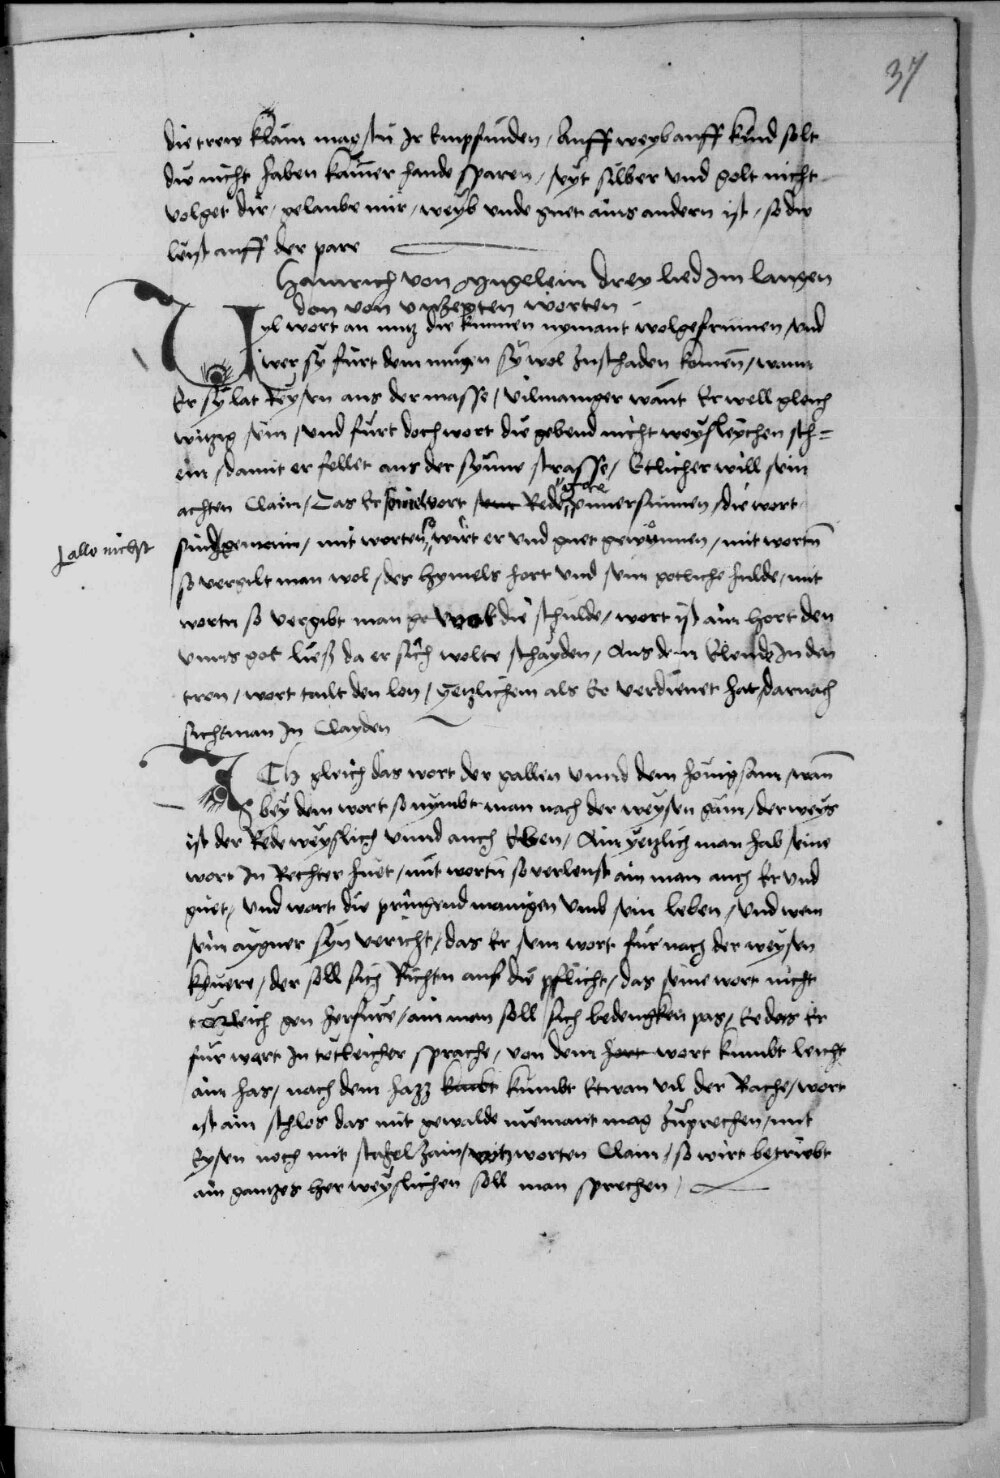 37
die trew klain mag stu Ir Empfinden / Auff weyb auff kind solt
du nicht haben kainer hande sparen / seyt silber vnd golt nicht
volget dir / gelaube mir / weyb vnde guet ains andern ist / so du
leist auff der pare
Hainrich von Mugelein drey lied Im langen
don von vnzegten worten
Vyl wort an nutz die kunnen nymant wolgefrumen / vnd
wer sy furt dem mugen sy wol zuschaden komen / wann
Er sy lat Reysen aus der masse / vilmaniger want Er well gleich
witzig sein / vnd furt doch wort die gebend nicht weysleychen sch=
ein / damit er fellet aus der synne strasse / Etlicher will sein
achten Clain / Das Er vil wort Rede vnuersunnen / die wort
alle nichst
sind gemain / mit worten so wirt er vnd guet gewunnen / mit wortn
so vergilt man wol / des hymels hort vnd sein gotliche hulde / mit
wortn so vergibt man die schulde / wort ist ain hort den
vnns got liess da er sich wolte schayden / Aus dem Elende In den
tron / wort tailt den lon / yetzlichem als Er verdienet hat / darnach
sicht man In Clayden
ICh gleich das wort der gallen vnnd dem honig sam / wann
bey dem wort so nymbt man nach der weysen gam / der weys
ist der Rede weyslich vnnd auch Eben / Ain yetzlich man hab seine
wort In Rechter huet / mit wortn so verleust ain man auch Er vnd
guet / vnd wort die pringend manigen vmb sein leben / vnd wem
sein aygner syn vericht / das Er sein wort fur nach der weysen
khuere / der soll sich Richtn auf die pflicht / das seine wort nicht
torleich gen herfure / ain man soll sich bedengken pas / Ee das Er
fur wart In totleicher sprache / von dem hort wort kumbt leicht
ain has / nach dem hazz kumbt Etwan vil der Rache / wort
ist ain schlos das mit gewalde niemant mag zuprechen / mit
Eysen noch mit stahel zain / mit worten Clain / so wirt betriebt
ain gantzes her weyslichen soll man sprechen /